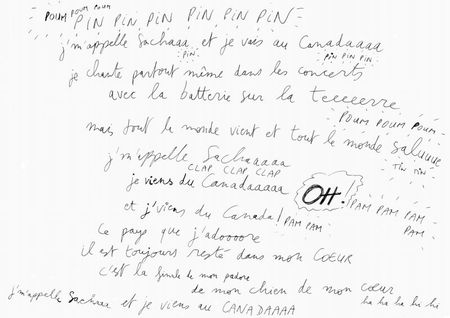 POUM POUM POUM
PIN PIN PIN PIN PIN PIN
j'm'appelle Sachaaa et je vais au Canadaaaa
PIN PIN PIN PIN
je chante partout même dans les concerts
avec la batterie sur la teeeerre
POUM POUM POUM
mais tout le monde vient et tout le monde saluuue
j'm'appelle Sachaaaaa
CLAP CLAP CLAP
je viens du Canadaaaaa OH!
et j'viens du Canada! PAM PAM PAM PAM PAM PAM
ce pays que j'adoooore
il est toujours resté dans mon COEUR
c'est la de mon
de mon chien de mon coeur
ha ha ha ha ha
j'm'appelle Sachaa et je viens au CANADAAAA